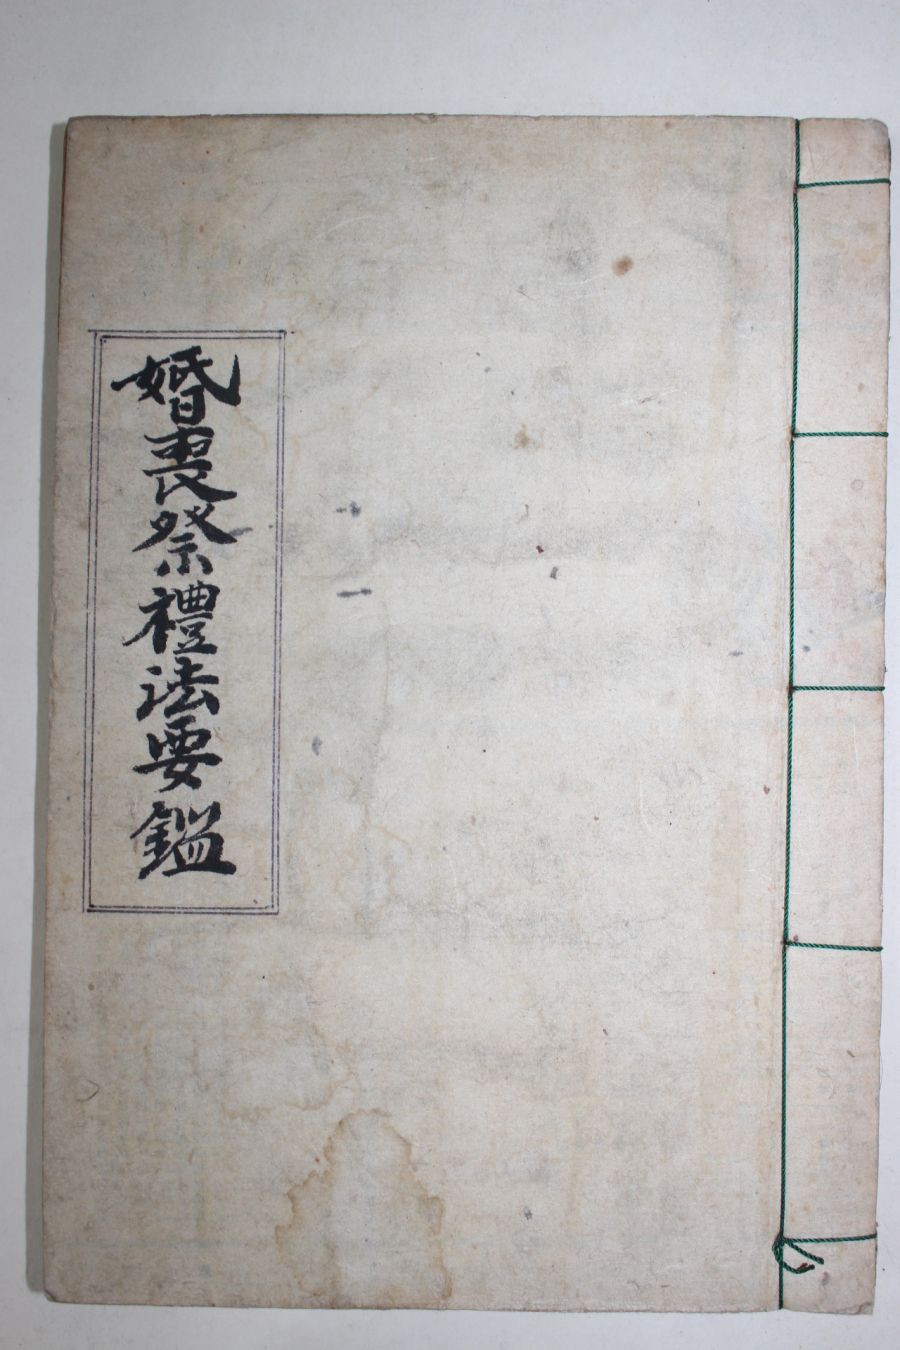 婚喪祭禮法要鑑